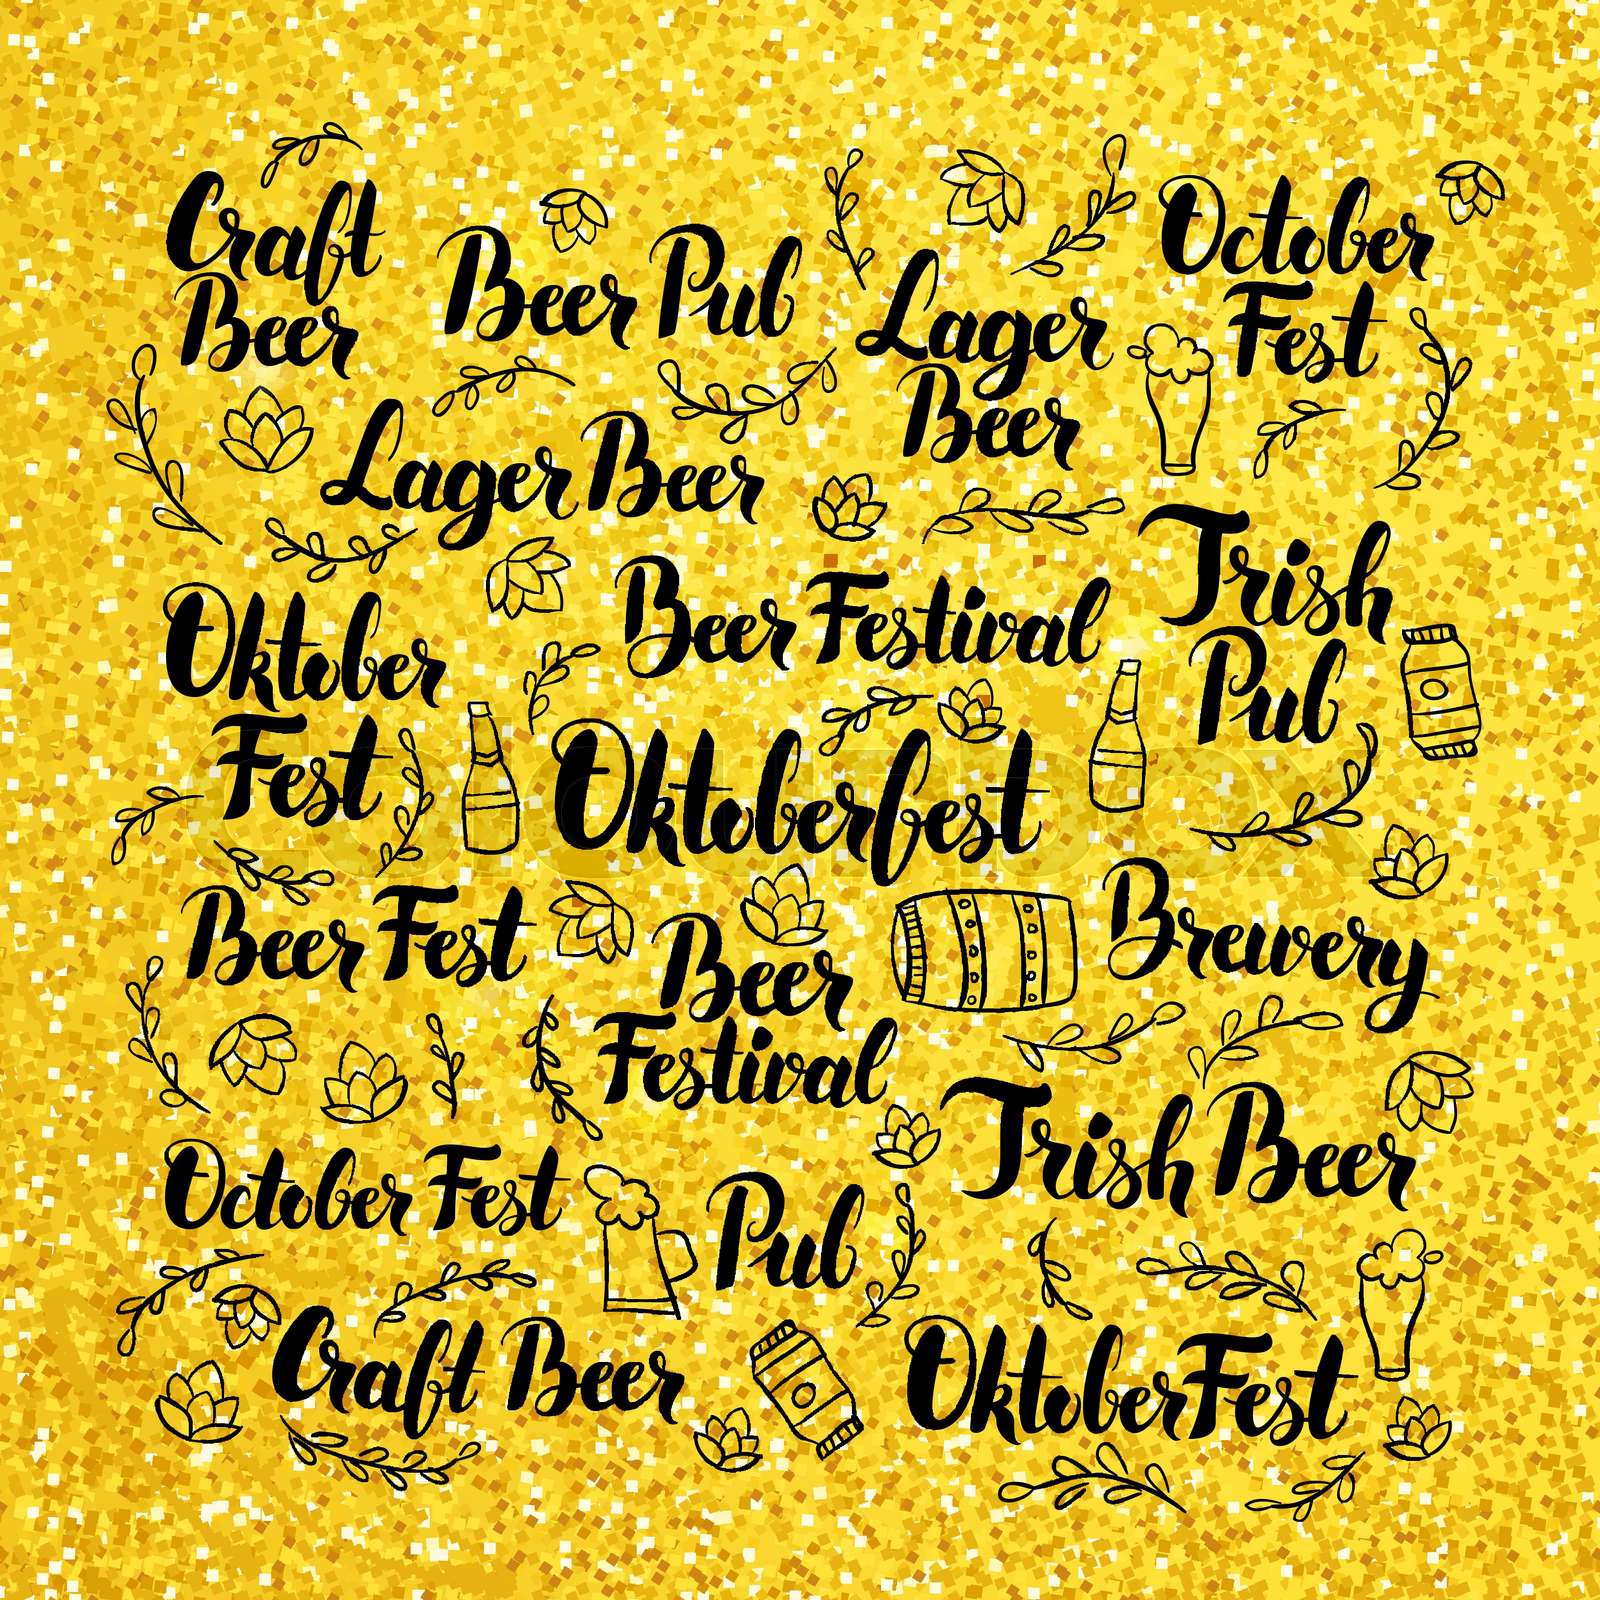 Craft
Beer
Beer Pub
Lager
Beer
October
Fest
Lager Beer
Beer Festival
Irish
Pub
Oktober
Fest
Oktoberfest
Beer Fest
Beer
Festival
Brewery
October Fest
Pub
Irish Beer
Craft Beer
OktoberFest